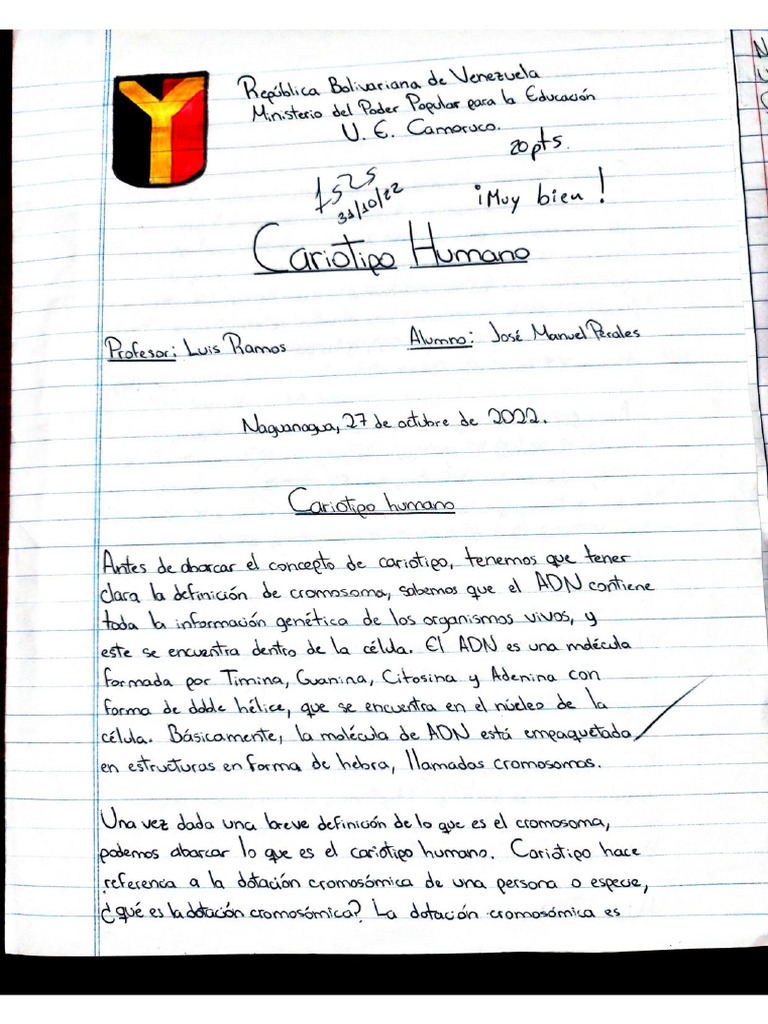 República Bolivariana de Venezuela
Ministerio del Poder Popular para la Educación
U. E. Camoruco.
20pts.
31/10/22
¡Muy bien!
Cariotipo Humano
Profesor: Luis Ramos
Alumno: José Manuel Pérales
Naguanagua, 27 de octubre de 2022.
Cariotipo humano
Antes de abarcar el concepto de cariotipo, tenemos que tener
clara la definición de cromosoma, sabemos que el ADN contiene
toda la información genética de los organismos vivos, y
este se encuentra dentro de la célula. El ADN es una molécula
formada por Timina, Guanina, Citosina y Adenina con
forma de doble hélice, que se encuentra en el núcleo de la
célula. Básicamente, la molécula de ADN está empaquetada
en estructuras en forma de hebra, llamadas cromosomas.
Una vez dada una breve definición de lo que es el cromosoma,
podemos abarcar lo que es el cariotipo humano. Cariotipo hace
referencia a la dotación cromosómica de una persona o especie,
¿qué es la dotación cromosómica? La dotación cromosómica es